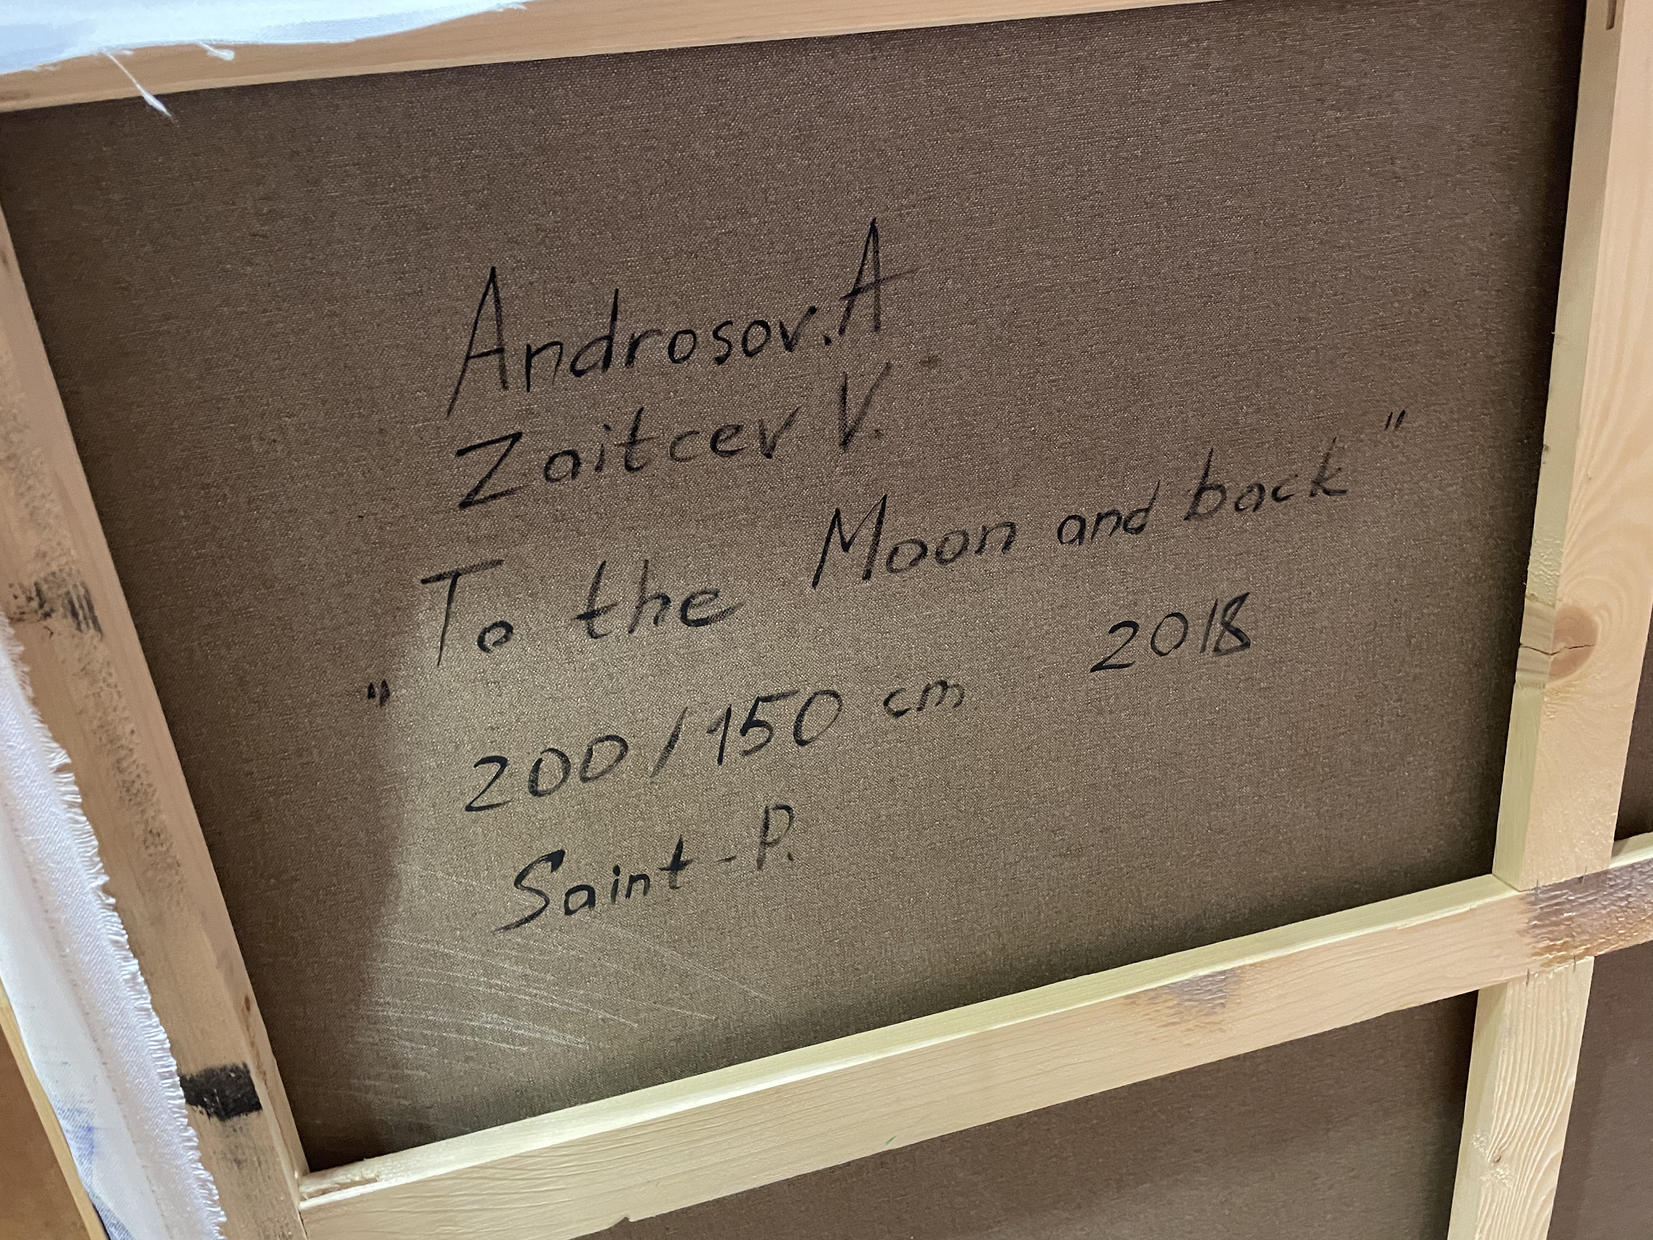 Androsov.A
Zaitcev V.
"To the Moon and back"
200/150 cm 2018
Saint-P.